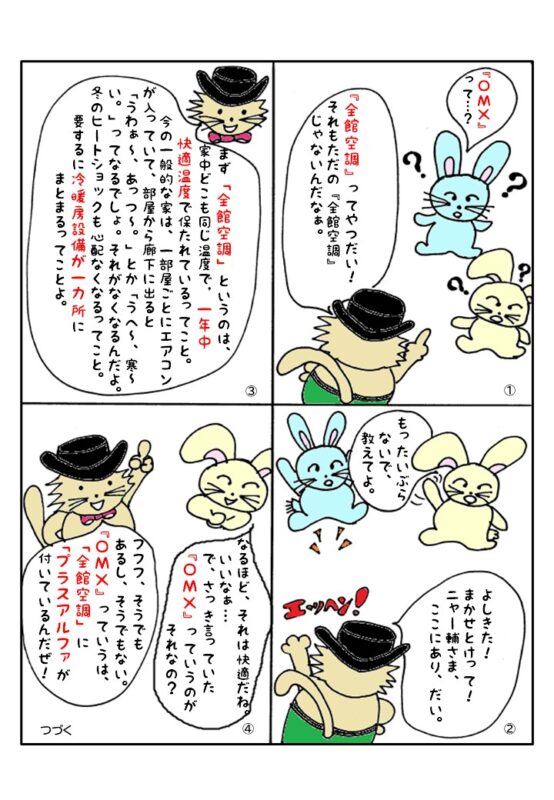 『OMX』
って…?
?
?
?
?
『全館空調』ってやつだい！
それもただの『全館空調』
じゃないんだなぁ。
①
もったいぶら
ないで、
教えてよ。
よしきた！
まかせとけって！
ニャー輔さま、
ここにあり、だい。
エッヘン！
②
まず「全館空調」というのは、
家中どこも同じ温度で、一年中
快適温度で保たれているってこと。
今の一般的な家は、一部屋ごとにエアコン
が入っていて、部屋から廊下に出ると
「うわぁ～、あっつ～。」とか「うへ～、寒～
い。」ってなるでしょ。それがなくなるんだよ。
冬のヒートショックも心配なくなるってこと。
要するに冷暖房設備が一カ所に
まとまるってことよ。
③
なるほど、それは快適だね。
いいなぁ…
で、さっき言っていた
『OMX』っていうのが
それなの？
フフフ、そうでも
あるし、そうでもない。
『OMX』っていうは、
「全館空調」に
「プラスアルファ」が
付いているんだぜ！
④
つづく